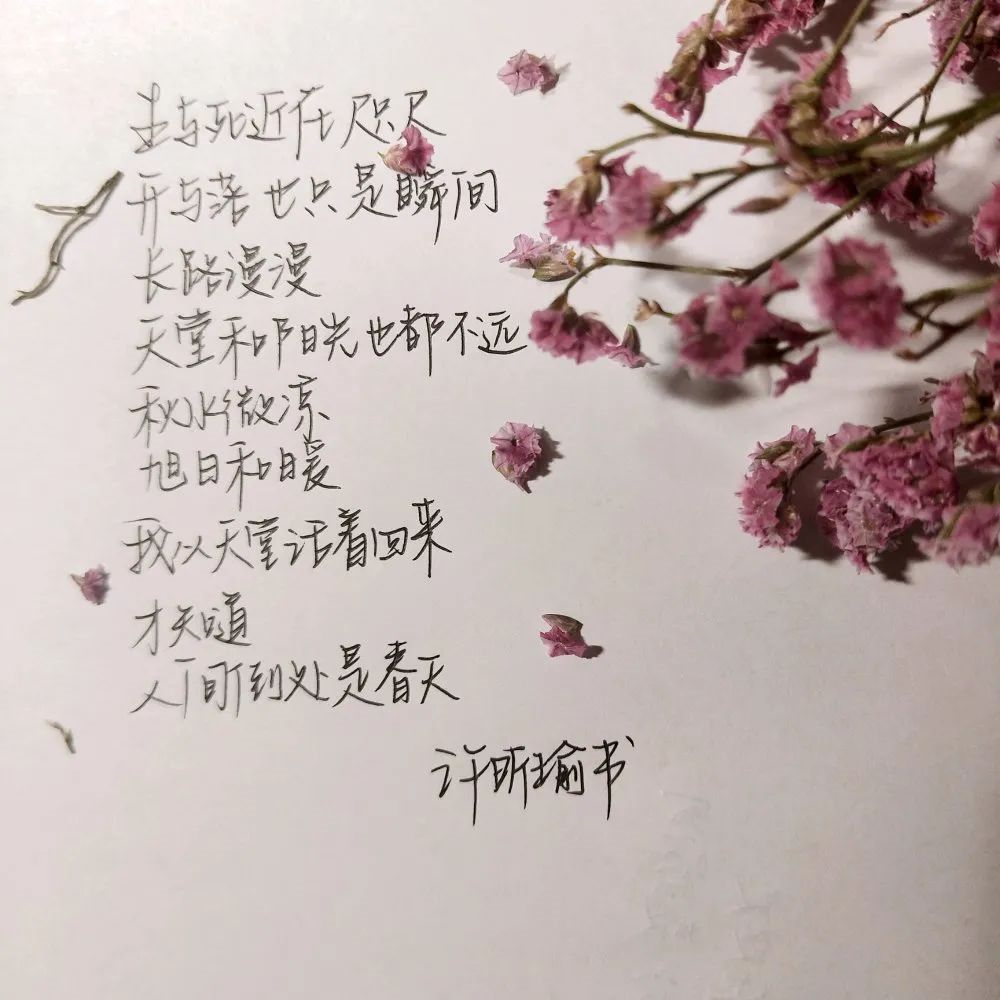 生与死近在咫尺
开与落也只是瞬间
长路漫漫
天堂和阳光也都不远
秋水微凉
旭日和暖
我从天堂活着回来
才知道
人间到处是春天
许昕瑜书